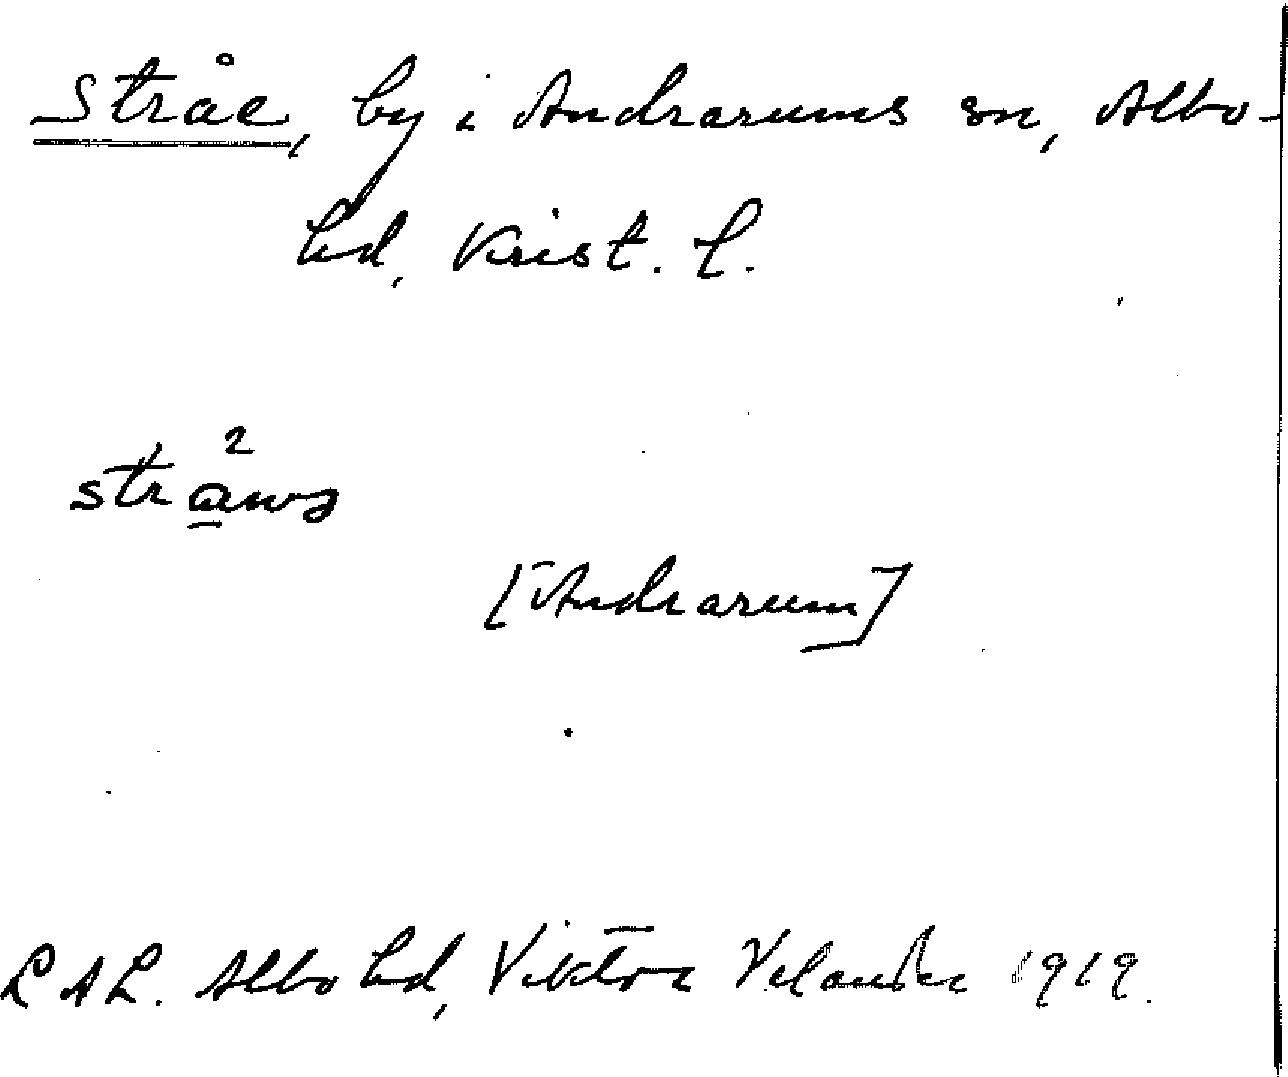 Stråe, by i Andrarums sn, Albo-
hd, Krist. l.
[Andrarum]
L A L. Albo hd, Viktor Velander 1919.